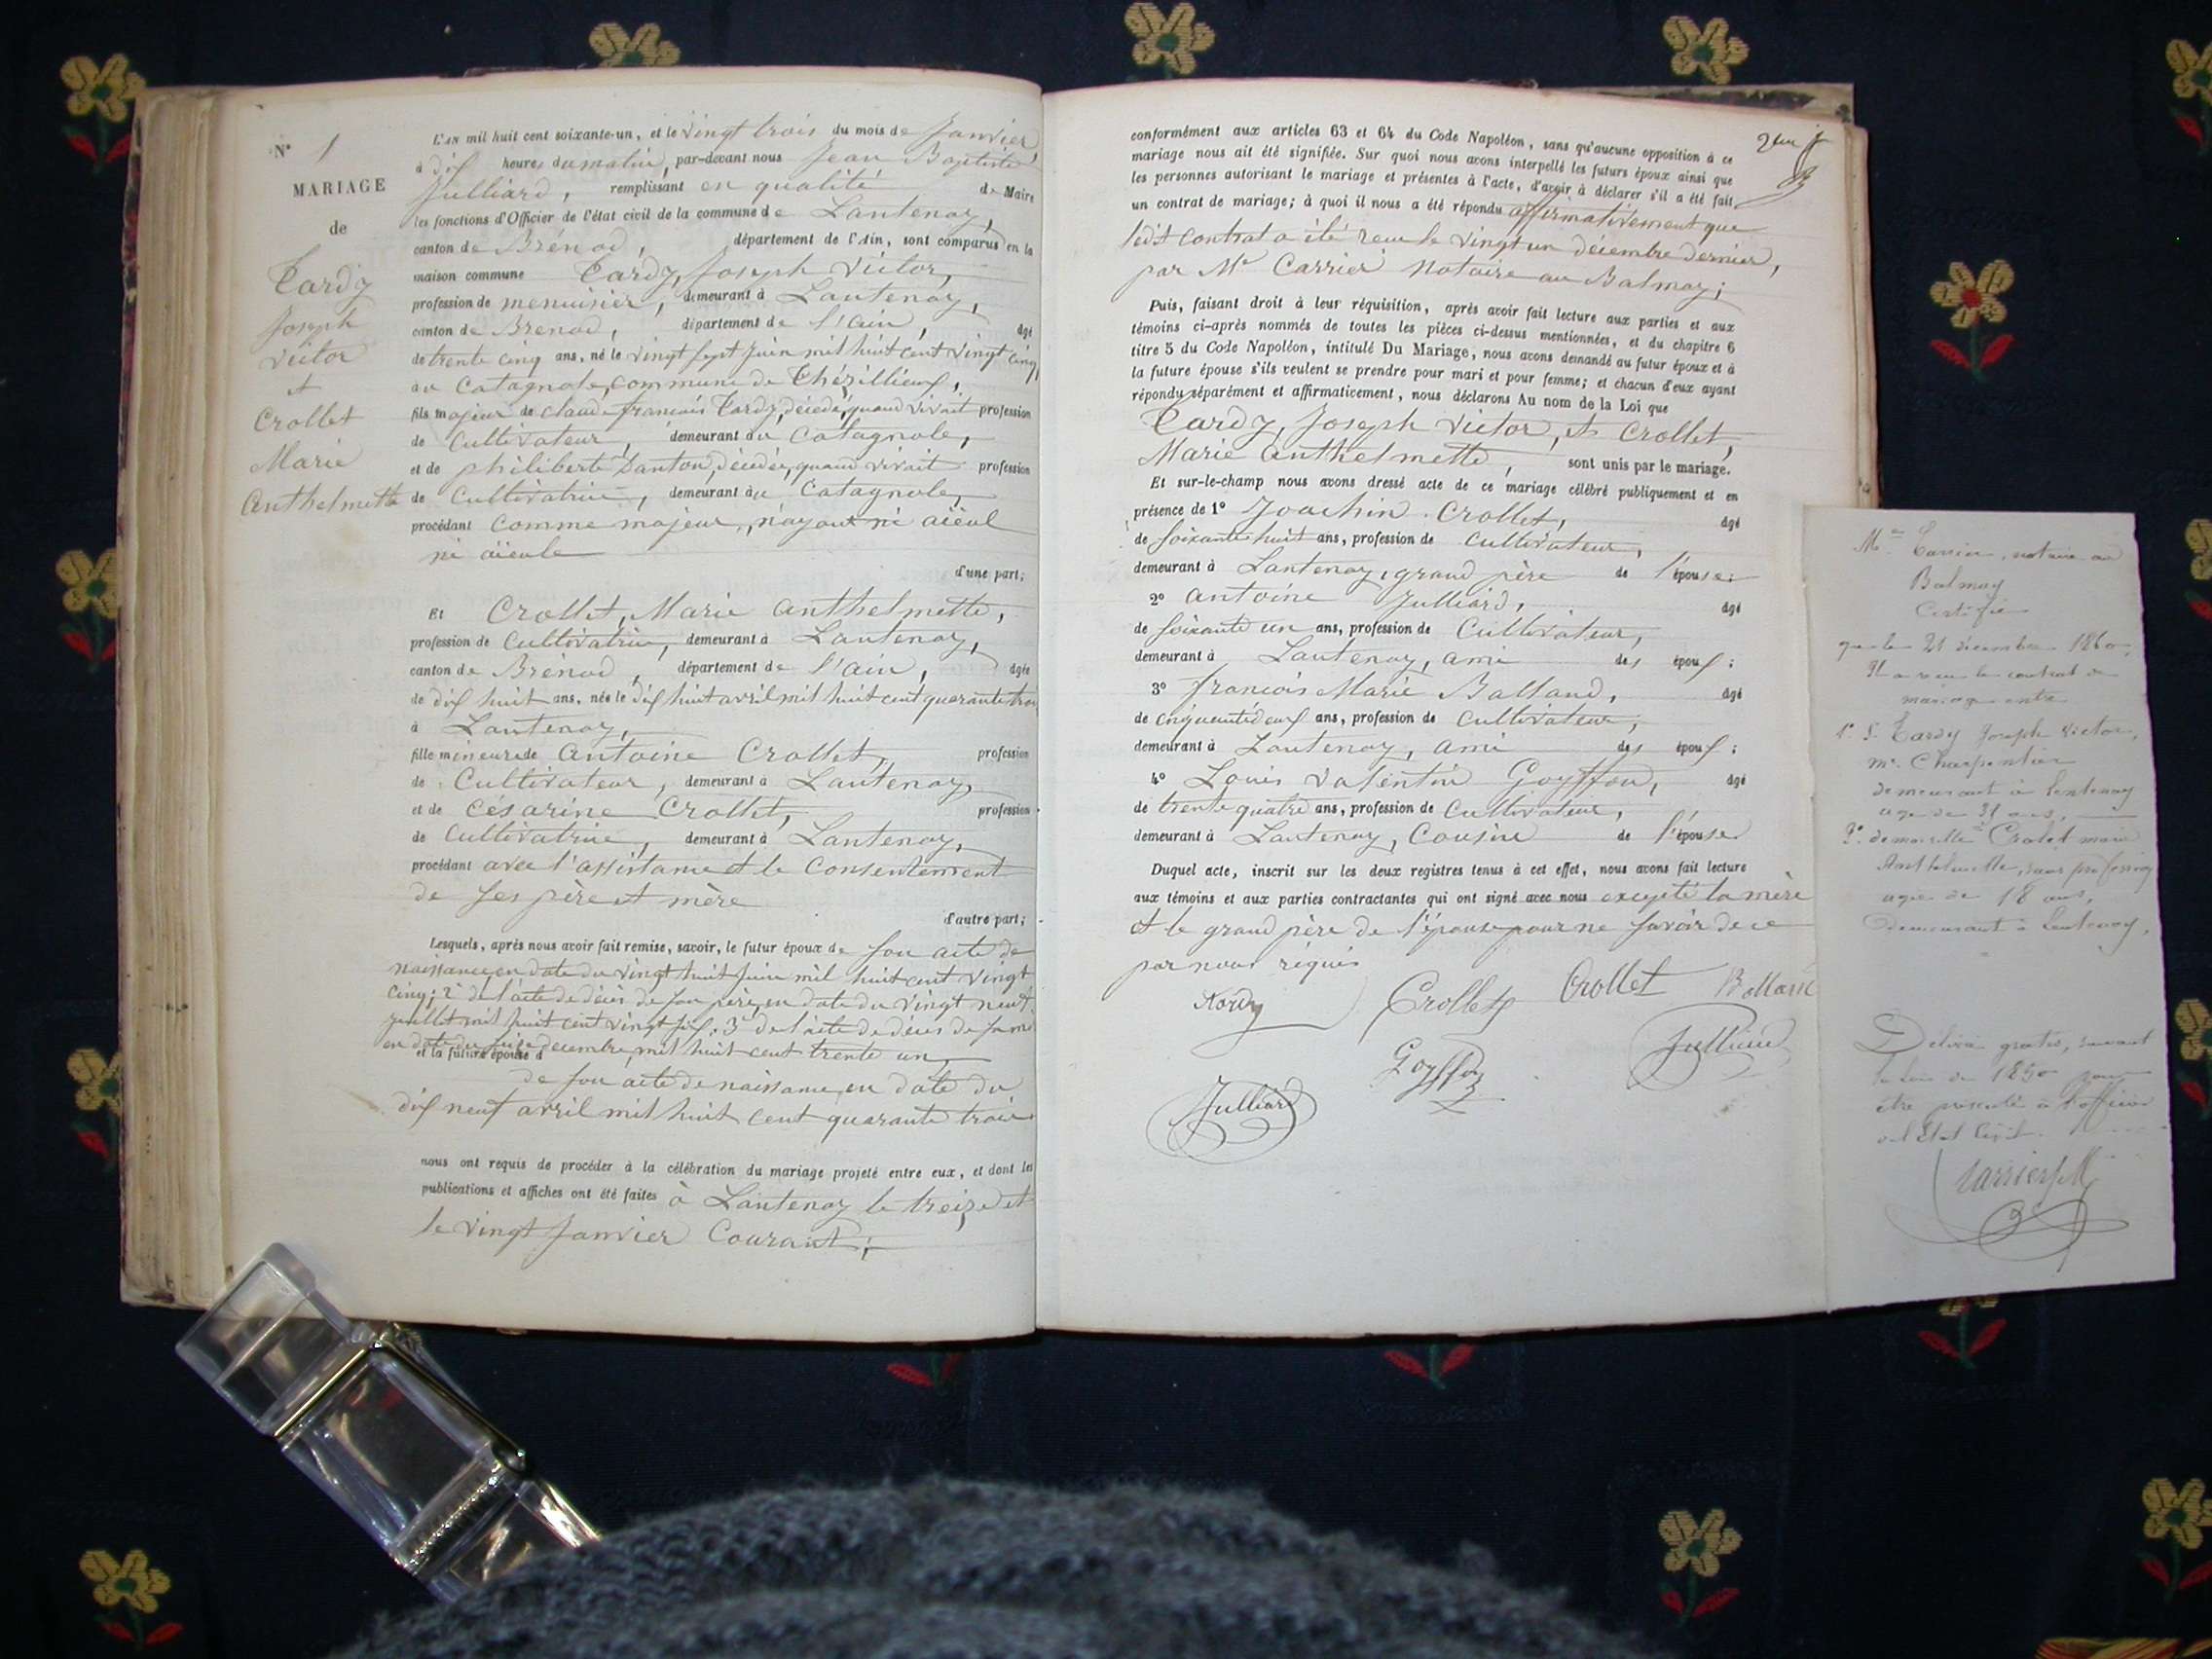 N° 1
MARIAGE
de
Tardy
Joseph
Victor
et
Crollet
Marie
Anthelmette
L'AN mil huit cent soixante-un, et le vingt trois du mois de Janvier
à dix heures du matin, par-devant nous Jean Baptiste
Julliard, remplissant en qualité de Maire
les fonctions d'Officier de l'état civil de la commune de Lantenay,
canton de Brénod, département de l'Ain, sont comparus en la
maison commune Tardy, Joseph Victor,
profession de menuisier, demeurant à Lantenay,
canton de Brenod, département de l'ain, âgé
de trente cinq ans, né le vingt sept Juin mil huit cent vingt cinq
au Catagnole, commune de Thézillieux,
fils majeur de claude françois Tardy, décédé, quand vivait profession
de Cultivateur, demeurant au Catagnole,
et de philiberte Danton, décédée, quand vivait profession
de Cultivatrice, demeurant au Catagnole,
procédant comme majeur, n'ayant ni aïeul
ni aïeule
d'une part;
Et Crollet, Marie anthelmette,
profession de Cultivatrice, demeurant à Lantenay,
canton de Brénod, département de l'ain, âgée
de dix huit ans, née le dix huit avril mil huit cent quarante trois
à Lantenay,
fille mineure de Antoine Crollet, profession
de Cultivateur, demeurant à Lantenay,
et de Césarine Crollet, profession
de Cultivatrice, demeurant à Lantenay,
procédant avec l'assistance et le Consentement
de ses père et mère
d'autre part;
Lesquels, après nous avoir fait remise, savoir, le futur époux de son acte de
naissance en date du vingt huit Juin mil huit cent vingt
cinq; 2° de l'acte de décès de son père, en date du vingt neuf
juillet mil huit cent vingt six; 3° de l'acte de décès de sa mère
en date du seize decembre, mil huit cent trente un,
et la future épouse d
de son acte de naissance, en date du
dix neuf avril mil huit cent quarante trois
nous ont requis de procéder à la célébration du mariage projeté entre eux, et dont les
publications et affiches ont été faites à Lantenay le treize et
le vingt Janvier Courant;
conformément aux articles 63 et 64 du Code Napoléon, sans qu'aucune opposition à ce
mariage nous ait été signifiée. Sur quoi nous avons interpellé les futurs époux ainsi que
les personnes autorisant le mariage et présentes à l'acte, d'avoir à déclarer s'il a été fait
un contrat de mariage; à quoi il nous a été répondu affirmativement que
ledit contrat a été reçu le vingt un décembre dernier,
par Me Carrier Notaire au Balmay;
Puis, faisant droit à leur réquisition, après avoir fait lecture aux parties et aux
témoins ci-après nommés de toutes les pièces ci-dessus mentionnées, et du chapitre 6
titre 5 du Code Napoléon, intitulé Du Mariage, nous avons demandé au futur époux et à
la future épouse s'ils veulent se prendre pour mari et pour femme; et chacun d'eux ayant
répondu séparément et affirmativement, nous déclarons Au nom de la Loi que
Tardy, Joseph Victor, et Crollet,
Marie anthelmette, sont unis par le mariage.
Et sur-le-champ nous avons dressé acte de ce mariage célébré publiquement et en
présence de 1° Joachin Crollet, âgé
de soixante huit ans, profession de Cultivateur,
demeurant à Lantenay, grand père de l'épouse;
2° antoine Julliard, âgé
de soixante un ans, profession de Cultivateur,
demeurant à Lantenay, ami des époux;
3° françois Marie Balland, âgé
de cinquante deux ans, profession de Cultivateur,
demeurant à Lantenay, ami des époux;
4° Louis Valentin Goyffon, âgé
de trente quatre ans, profession de Cultivateur,
demeurant à Lantenay, Cousin de l'épouse
Duquel acte, inscrit sur les deux registres tenus à cet effet, nous avons fait lecture
aux témoins et aux parties contractantes qui ont signé avec nous excepté la mère
et le grand père de l'épouse pour ne savoir de ce
par nous requis
Tardy Crollet Crollet Balland
Goyffon Julliard
Julliard
Me Carrier, notaire au
Balmay
Certifie
que le 21 décembre 1860,
Il a reçu le contrat de
mariage entre
1° S. Tardy Joseph Victor,
me. Charpentier
demeurant à Lentenay
agé de 35 ans,
2° demoiselle Crolet marie
Anthelmette, sans profession
agée de 18 ans,
Demeurant à Lentenay,
Délivré gratis, suivant
la loi de 1850 pour
être présenté à l'officier
de l'Etat Civil.
Carrier